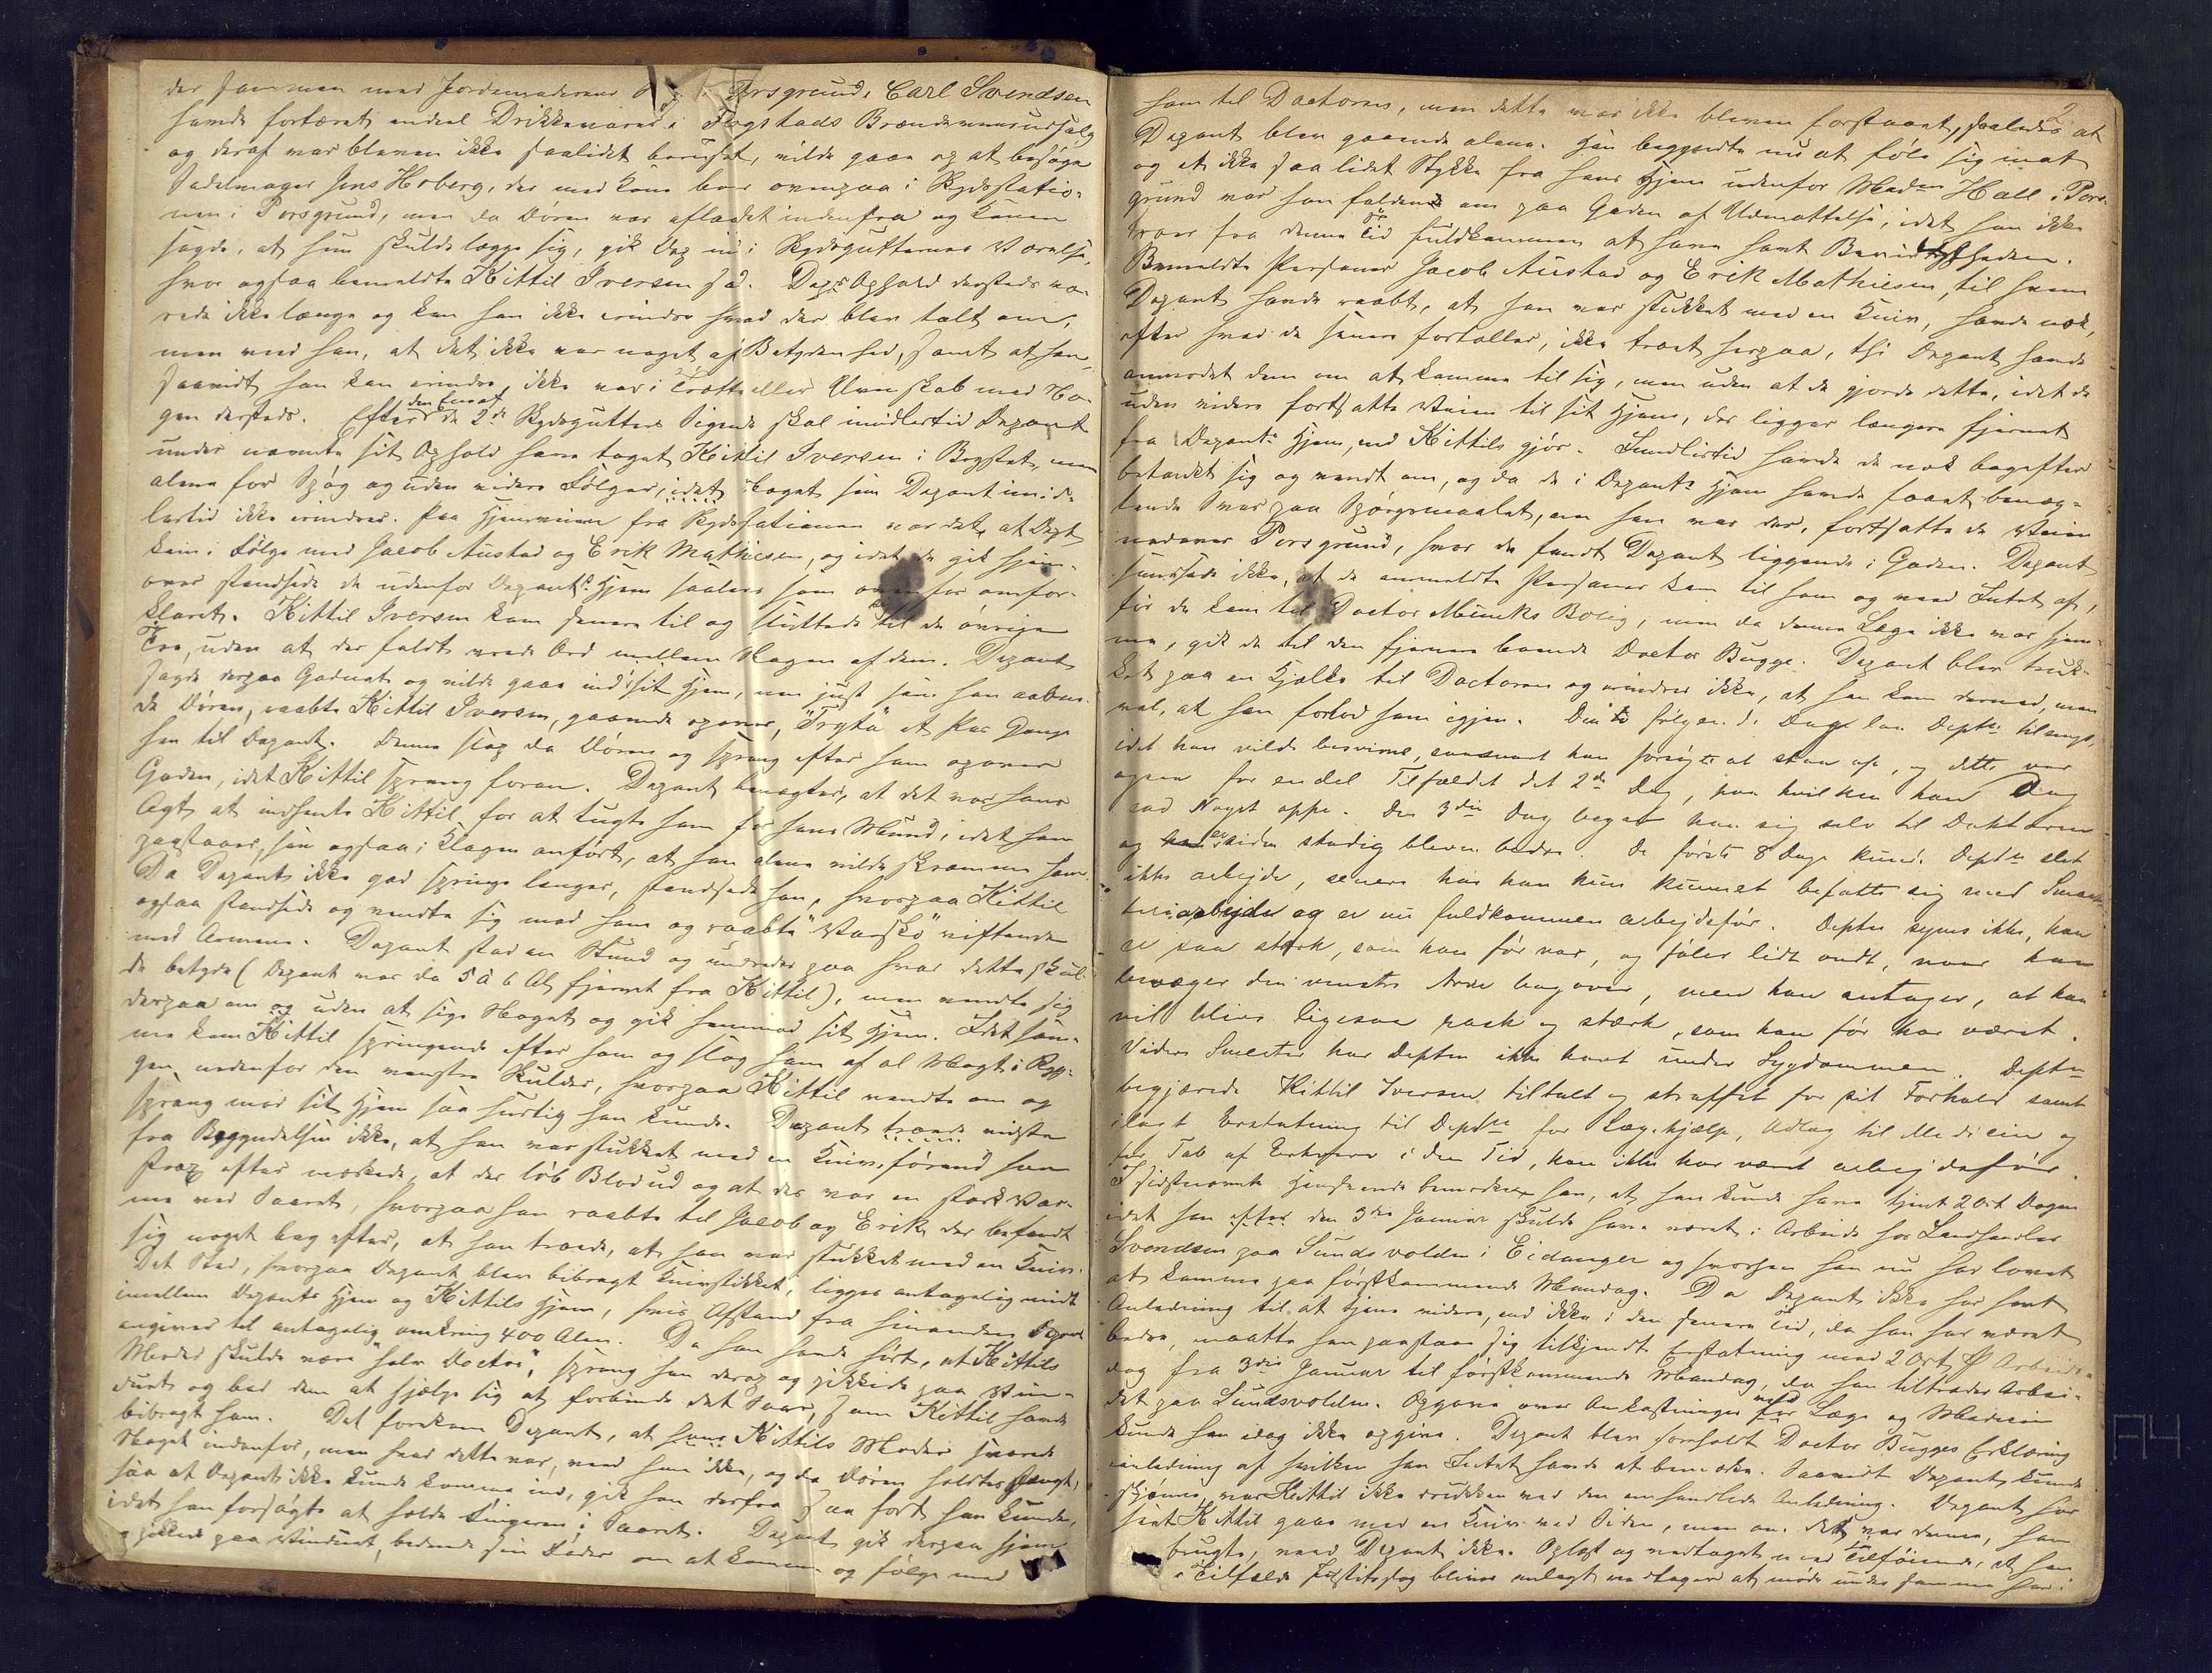 der sammen med Jordemoderens i Porsgrund, Carl Svendsen
havde fortæret endeel Drikkevarer i Fogstads Brændeviinsudsalg
og deraf var bleven ikke saalidet beruset, vilde gaae og at besøge
Sadelmager Jens Hoberg, der med Kone bor ovenpaa i Skydsstatio-
nen i Porsgrund, men da Døren var aflaaset indenfra og Konen
sagde, at hun skulde lægge sig, gik Dep ind i Skydsgutternes Værelse,
hvor ogsaa bemeldte Kittil Iversen sad. Deps Ophold dersteds va-
rede ikke længe og kan han ikke erindre hvad der blev talt om,
men veed han, at det ikke var noget af Betydenhed, samt at han
saavidt han kan erindre, ikke var i Trætte eller Uvenskab med No-
gen dersteds. Efter den Enes af de 2de Skydsgutters Sigende skal imidlertid Deponent
under nævnte sit Ophold have taget Kittil Iversen i Brystet, men
alene for Spøg og uden videre Følger, idet Noget som Deponent imid-
lertid ikke erindrer. Paa Hjemveien fra Skydsstationen var det, at Dept
kom i Følge med Jacob Austad og Erik Mathiesen, og idet de gik hjem-
over standsede de udenfor Deponents Hjem saaledes som ovenfor omfor-
klaret. Kittil Iversen kom senere til og sluttede sig til de øvrige
Tre, uden at der faldt vrede Ord mellem Nogen af dem. Deponent
sagde derpaa Godnat og vilde gaae ind i sit Hjem, men just som han aabne-
de Døren, raabte Kittil Iversen, gaaende opover, "Tryta" et Par Gange
hen til Deponent. Denne slap da Døren og sprang efter ham opover
Gaden, idet Kittil sprang foran. Deponent benægter, at det var hans
Agt at indhente Kittil for at tugte ham for hans Mund, idet han
paastaaer, som ogsaa i Klagen anført, at han alene vilde skræmme ham.
Da Deponent ikke gad springe længer, standsede han, hvorpaa Kittil
ogsaa standsede og vendte sig mod ham og raabte "Varsko" viftende
med Armene. Deponent stod en Stund og undredes paa hvad dette skul-
de betyde (Deponent var da 5 à 6 Al. fjernet fra Kittil), men vendte sig
derpaa om og uden at sige Noget og gik henimod sit Hjem. Idetsam-
me kom Kittil springende efter ham og slog ham af al Magt i Ryg-
gen nedenfor den venstre Skulder, hvorpaa Kittil vendte om og
sprang mod sit Hjem saa hurtig han kunde. Deponent troede vidste
fra Begyndelsen ikke, at han var stukket med en Kniv, førend han
strax efter mærkede, at der løb Blod ud og at der var en stærk Var-
me ved Saaret, hvorpaa han raabte til Jacob og Erik, der befandt
sig noget bag efter, at han troede, at han var stukket med en Kniv.
Det Sted, hvorpaa Deponent blev bibragt Knivstikket, ligger antagelig midt
imellem Deponents Hjem og Kittils Hjem, hvis Afstand fra hinanden
angives til antagelig omkring 400 Alen. Da han havde hørt, at Kittils
Moder skulde være "halv Doctor", sprang han derop og pikkede paa Vin-
duet og bad dem at hjælpe sig at forbinde det Saar, som Kittil havde
bibragt ham. Det forekom Deponent, at hans Kittils Moder svarede
Noget indenfor, men hvad dette var, veed han ikke, og da Døren holdtes stængt,
saa at Deponent ikke kunde komme ind, gik han derfra saa fort han kunde,
idet han forsøgte at holde Fingeren i Saaret. Deponent gik derpaa hjem
og pikkede paa Vinduet, bedende sin Fader om at komme og følge med
2
ham til Doctoren, men dette var ikke bleven forstaaet, saaledes at
Deponent blev gaaende alene. Han begyndte nu at føle sig mat
og et ikke saa lidet Stykke fra hans Hjem udenfor Madam Hall i Pors-
grund var han faldende om paa Gaden af Udmattelse, idet han ikke
troer fra denne Tid fuldkommen at have havt Bevidstheden.
Bemeldte Personer Jacob Austad og Erik Mathiesen, til hvem
Deponent havde raabt, at han var stukket med en Kniv, havde nok,
efter hvad de senere fortæller, ikke troet herpaa, thi Deponent havde
anmodet dem om at komme til sig, men uden at de gjorde dette, idet de
uden videre fortsatte Veien til sit Hjem, der ligger længere fjernet
fra Deponents Hjem, end Kittils gjør. Imidlertid havde de nok bagefter
betænkt sig og vendt om, og da de i Deponents Hjem havde faaet benæg-
tende Svar paa Spørgsmaalet, om han var der, fortsatte de Veien
nedover Porsgrund, hvor de fandt Deponent liggende i Gaden. Deponent
sandsede ikke, at de anmeldte Personer kom til ham og veed Intet af,
før de kom til Doctor Muncks Bolig, men da denne Læge ikke var hjem-
me, gik de til den fjernere boende Doctor Bugge. Deponent blev truk-
ket paa en Kjælke til Doctoren og erindrer ikke, at han kom dermed, men
vel, at han forlod ham igjen. De følgende Dage laa Deptn tilsengs,
idet han vilde besvime, saasnart han forsøgte at staa op, og dette var
ogsaa for endel Tilfældet det 2de Dag, paa hvilken han dog
sad Noget oppe. Den 3die Dag begav han sig selv til Doktoren
og er siden stadig bleven bedre. De første 8 Dage kunde Deptn slet
ikke arbejde, senere har han kun kunnet befatte sig med Smaa-
arbejder og er nu fuldkommen arbejdsfør. Deptn synes ikke, han
er saa stærk, som han før var, og føler lidt ondt, naar han
bevæger den venstre Arm bagover, men han antager, at han
vil blive ligesaa rask og stærk, som han før har været.
Videre Smerter har Deptn ikke havt under Sygdommen. Deptn
begjærede Kittil Iversen tiltalt og straffet for sit Forhold samt
ilagt Erstatning til Deptn for Lægehjælp, Udlæg til Medicin og
for Tab af Erhverv i den Tid, han ikke har været arbejdsfør.
I sidstnævnte Henseende bemærker han, at han kunde have tjent 2 Ort Dagen
idet han efter den 3die Januar skulde have været i Arbeide hos Landhandler
Svendsen paa Sundsvolden i Eidanger og hvorhen han nu har lovet
at komme paa førstkommende Mandag. Da Deponent ikke har havt
Anledning til at tjene videre, end ikke i den senere Tid, da han har været
bedre, maatte han paastaae sig tilkjendt Erstatning med 2 Ort pr Arbeids-
dag fra 3die Januar til førstkommende Mandag, da han tiltræder Arbei-
det paa Sundsvolden. Opgave over Omkostninger med for Læge og Medicin
kunde han idag ikke opgive. Deponent blev foreholdt Doctor Bugges Erklæring
i anledning af hvilken han Intet havde at bemærke. Saavidt Deponent kunde
skjønne, var Kittil ikke drukken ved den omhandlede Anledning. Deponent har
seet Kittil gaae med en Kniv ved Siden, men om det var denne, han
brugte, veed Deponent ikke. Oplæst og vedtaget med Tilføiende, at han
i Tilfælde Justitssag bliver anlagt vedtager at møde under samme her i